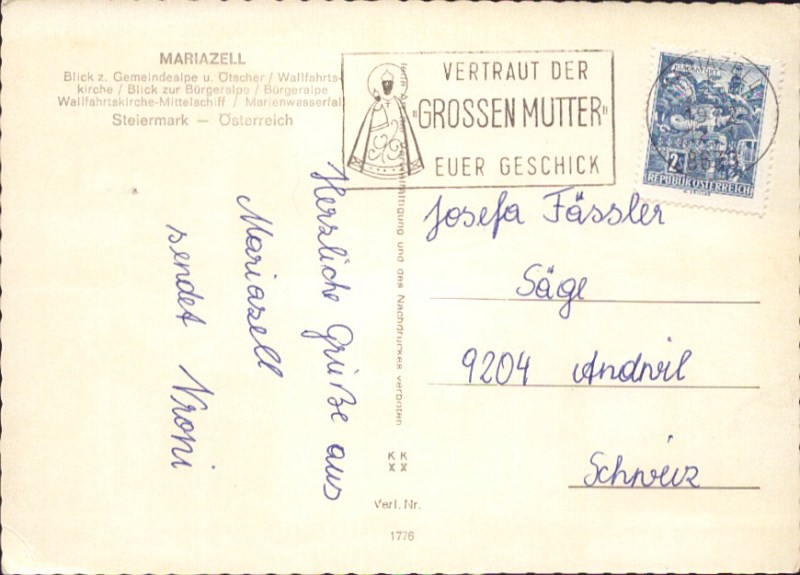 MARIAZELL
Blick z. Gemeindealpe u. Ötscher / Wallfahrts-
kirche / Blick zur Bürgeralpe / Bürgeralpe
Wallfahrtskirche-Mittelschiff / Marienwasserfal
Steiermark — Österreich
VERTRAUT DER
"GROSSEN MUTTER"
EUER GESCHICK
8630
2
REPUBLIK ÖSTERREICH
Herzliche Grüße aus
Mariazell
sendet Vroni
und des Nachdruckes verboten
Josefa Fässler
Säge
9204 Andwil
Schweiz
KK
XX
Verl. Nr.
1776